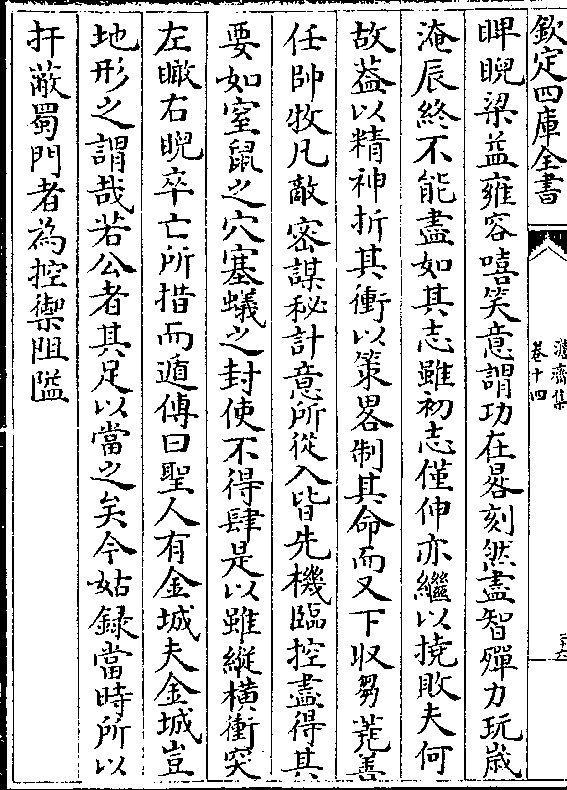 欽定四庫全書
卷十四
睥睨梁益雍容嘻笑意謂功在晷刻然盡智殫力玩歲
淹辰終不能盡如其志雖初志僅伸亦繼以撓敗夫何
故葢以精神折其衝以策畧制其命而又下收芻蕘善
任帥牧凡敵密謀秘計意所從入皆先機臨控盡得其
要如窒鼠之穴塞蟻之封使不得肆是以雖縱横衝突
左瞰右睨卒亡所措而遁傳曰聖人有金城夫金城豈
地形之謂哉若公者其足以當之矣今姑録當時所以
扞蔽蜀門者為控禦阻隘